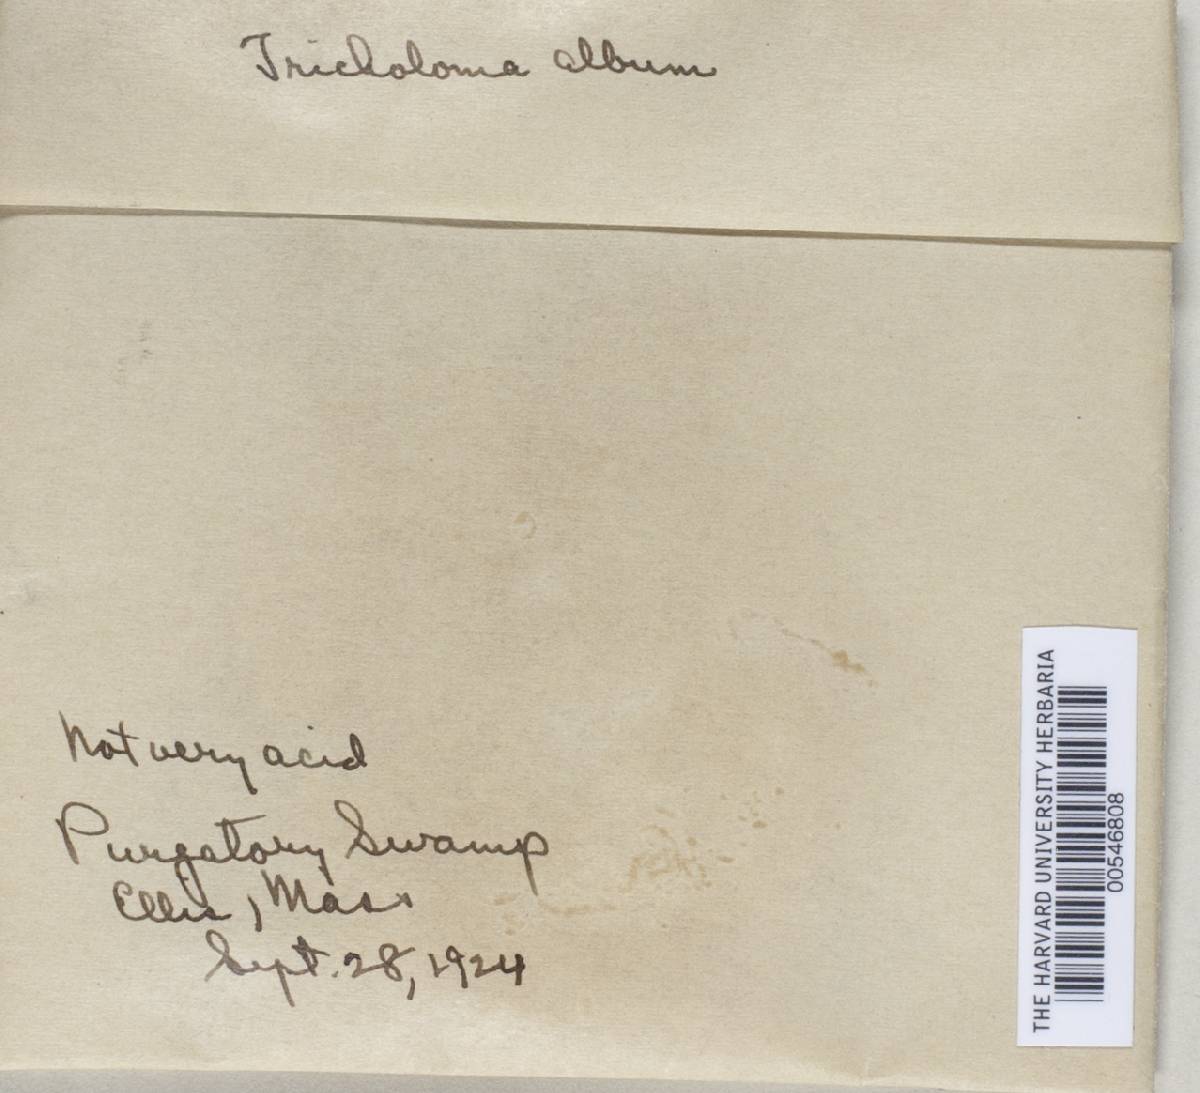 Tricholoma album
Not very acid
Purgatory Swamp
Ellis, Mass
Sept. 28, 1924
THE HARVARD UNIVERSITY HERBARIA
00546808